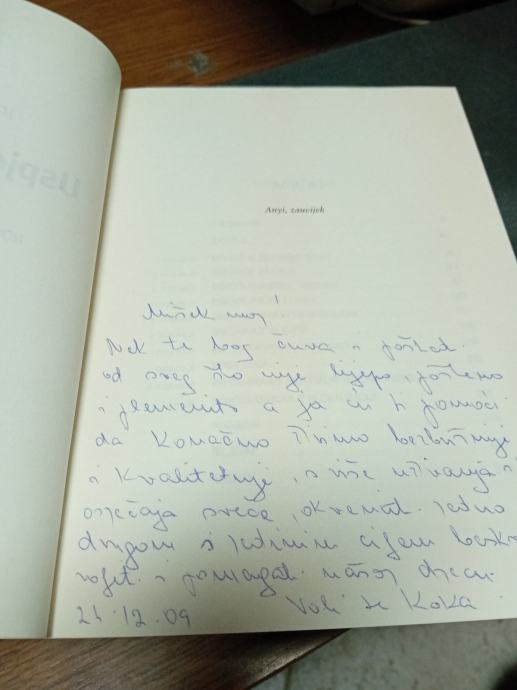 Anyi, zauvijek
Mišek moj!
Nek te bog čuva i
od sveg što nije lijepo, pošteno
i plemenito a ja ću ti pomoći
da konačno živimo bezbrižnije
i kvalitetnije, s više uživanja i
osjećaja sreće, okrenuti jedno
drugom s jedinim ciljem
i pomagati našoj djeci.
24.12.09 Voli te Koka